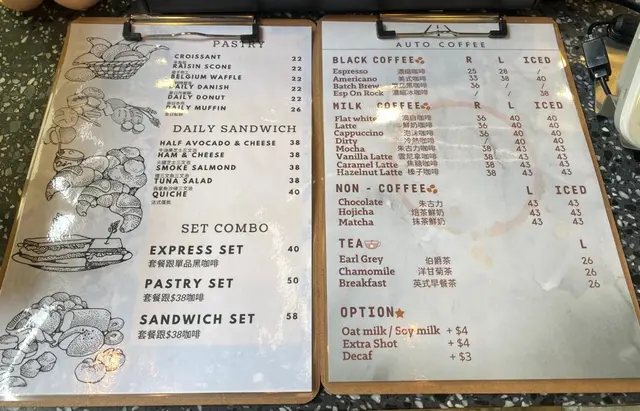 PASTRY
CROISSANT 22
RAISIN SCONE 22
BELGIUM WAFFLE 22
DAILY DANISH 22
DAILY DONUT 22
DAILY MUFFIN 26
DAILY SANDWICH
HALF AVOCADO & CHEESE 38
HAM & CHEESE 38
SMOKE SALMOND 38
TUNA SALAD 38
QUICHE 40
法式蛋批
SET COMBO
EXPRESS SET 40
套餐跟單品黑咖啡
PASTRY SET 50
套餐跟$38咖啡
SANDWICH SET 58
套餐跟$38咖啡
AUTO COFFEE
BLACK COFFEE R L ICED
Espresso 濃縮咖啡 25 28 /
Americano 美式咖啡 33 38 40
Batch Brew 36 40 40
Esp On Rock 濃縮冰咖啡 / / 38
MILK COFFEE R L ICED
Flat white 36 40 40
Latte 鮮奶咖啡 36 40 40
Cappuccino 泡沫咖啡 36 40 40
Dirty / / 40
Mocha 朱古力咖啡 38 43 43
Vanilla Latte 雲尼拿咖啡 38 43 43
Caramel Latte 焦糖咖啡 38 43 43
Hazelnut Latte 榛子咖啡 38 43 43
NON - COFFEE L ICED
Chocolate 朱古力 43 43
Hojicha 焙茶鮮奶 43 43
Matcha 抹茶鮮奶 43 43
TEA L
Earl Grey 伯爵茶 26
Chamomile 洋甘菊茶 26
Breakfast 英式早餐茶 26
OPTION
Oat milk / Soy milk + $4
Extra Shot + $4
Decaf + $3